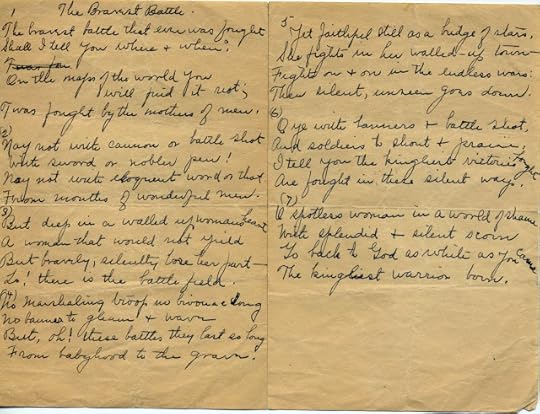 1 The Bravest Battle.
The bravest battle that ever was fought
Shall I tell you where & when?
On the maps of the world you
will find it not;
T'was fought by the mothers of men.
(2)
Nay not with cannon or battle shot
With sword or nobler pen!
Nay not with eloquent word or thot
From mouths of wonderful men.
(3)
But deep in a walled up woman's heart
A woman that would not yield
But bravely, silently, bore her part—
Lo! there is the battle field.
(4)
No marshaling troop no bivouac song
No banner to gleam & wave
But, oh! these battles they last so long
From babyhood to the grave.
5
Yet faithful still as a bridge of stars,
She fights in her walled-up town—
Fights on & on in the endless wars
Then silent, unseen goes down.
(6)
O ye with banners & battle shot,
And soldiers to shout & praise,
I tell you the kingliest victories fought
Are fought in these silent ways.
(7)
O spotless woman in a world of shame
With splendid & silent scorn
Go back to God as white as you came
The kingliest warrior born.